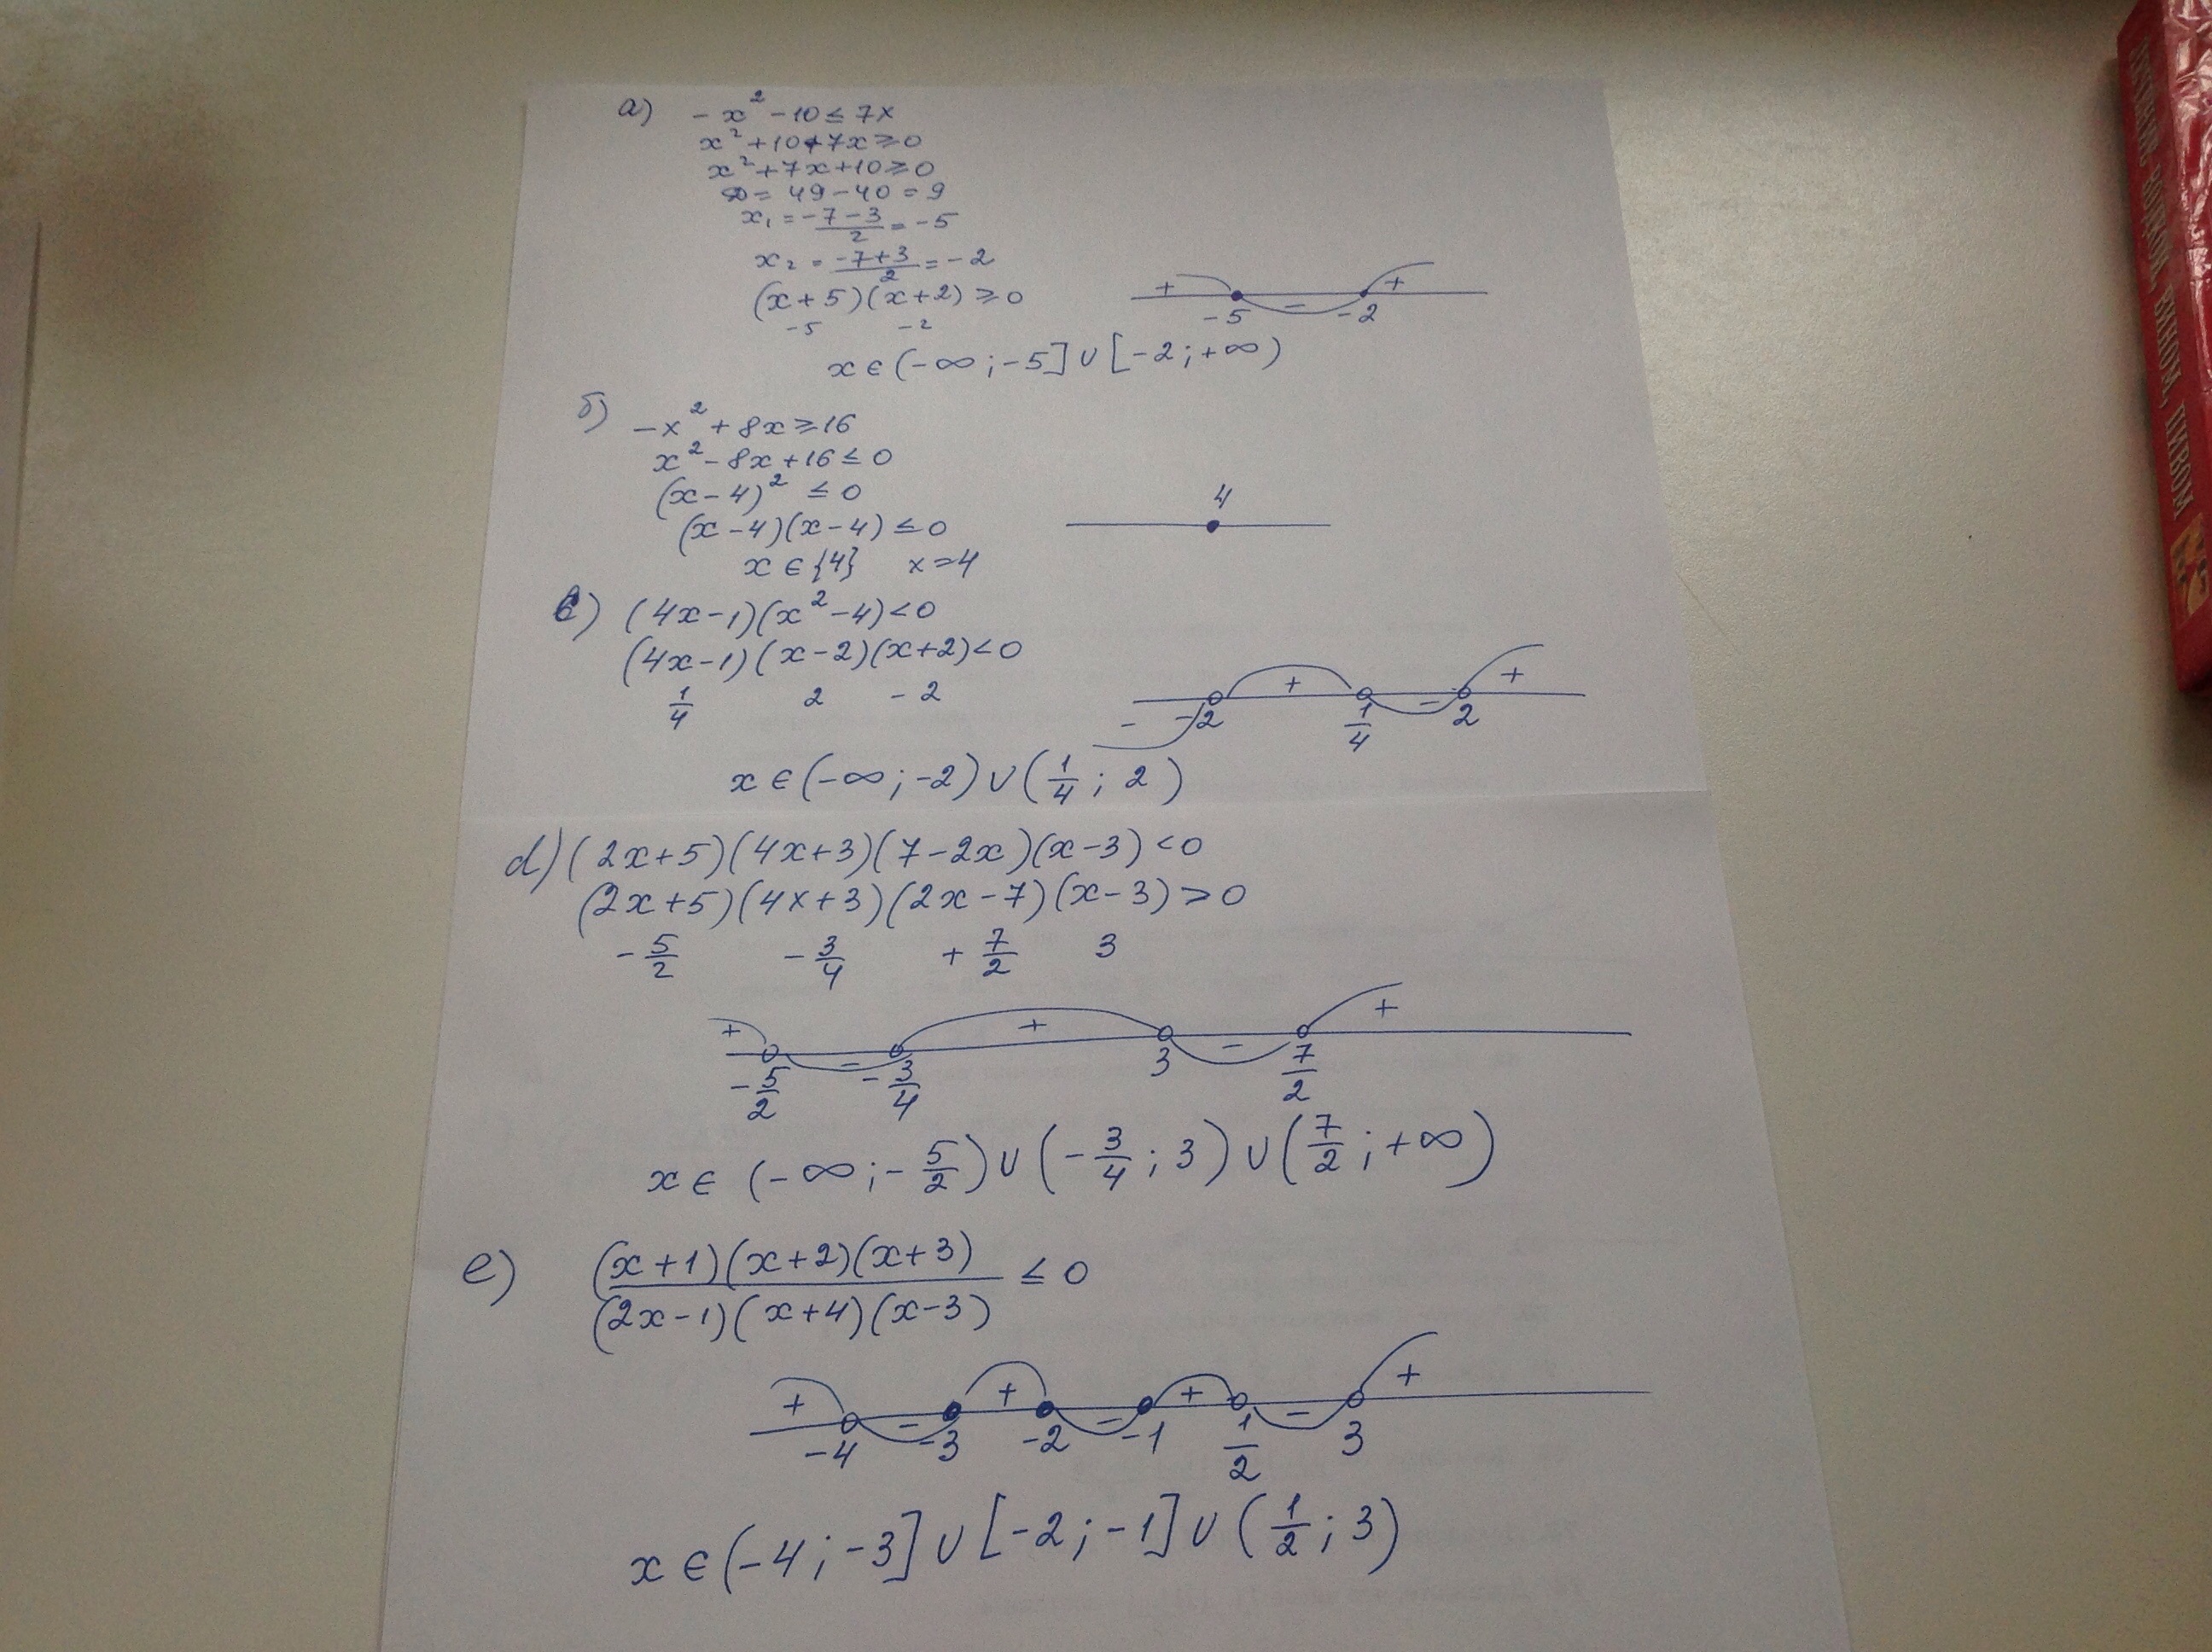 а) -x² - 10 ≤ 7x
x² + 10 + 7x ≥ 0
x² + 7x + 10 ≥ 0
D = 49 - 40 = 9
x₁ = (-7-3)/2 = -5
x₂ = (-7+3)/2 = -2
(x+5)(x+2) ≥ 0
-5 -2
+ - +
-5 -2
x ∈ (-∞; -5] ∪ [-2; +∞)
б) -x² + 8x ≥ 16
x² - 8x + 16 ≤ 0
(x-4)² ≤ 0
(x-4)(x-4) ≤ 0
4
x ∈ {4} x = 4
в) (4x-1)(x²-4) < 0
(4x-1)(x-2)(x+2) < 0
1/4 2 -2
- + - +
-2 1/4 2
x ∈ (-∞; -2) ∪ (1/4; 2)
d) (2x+5)(4x+3)(7-2x)(x-3) < 0
(2x+5)(4x+3)(2x-7)(x-3) > 0
-5/2 -3/4 +7/2 3
+ - + - +
-5/2 -3/4 3 7/2
x ∈ (-∞; -5/2) ∪ (-3/4; 3) ∪ (7/2; +∞)
e) (x+1)(x+2)(x+3)/(2x-1)(x+4)(x-3) ≤ 0
+ - + - + - +
-4 -3 -2 -1 1/2 3
x ∈ (-4; -3] ∪ [-2; -1] ∪ (1/2; 3)